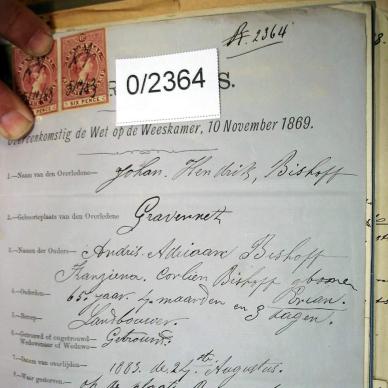 No. 2364
0/2364
S.
SIX PENCE
Overeenkomstig de Wet op de Weeskamer, 10 November 1869.
1.—Naam van den Overledene Johan. Hendrik, Bishoff
2.—Geboorteplaats van den Overledene Gravennett
3.—Namen der Ouders Andris Adriaan Bishoff
Bishoff geboren
4.—Ouderdom 65 jaar. 4 maanden en 3 dagen.
5.—Beroep Landbouwer.
6.—Getrouwd of ongetrouwd Getrouwd
Weduwenaar of Weduwe
7.—Datum van overlijden 1883. de 24ste Augustus.
8.—Waar gestorven op de plaats